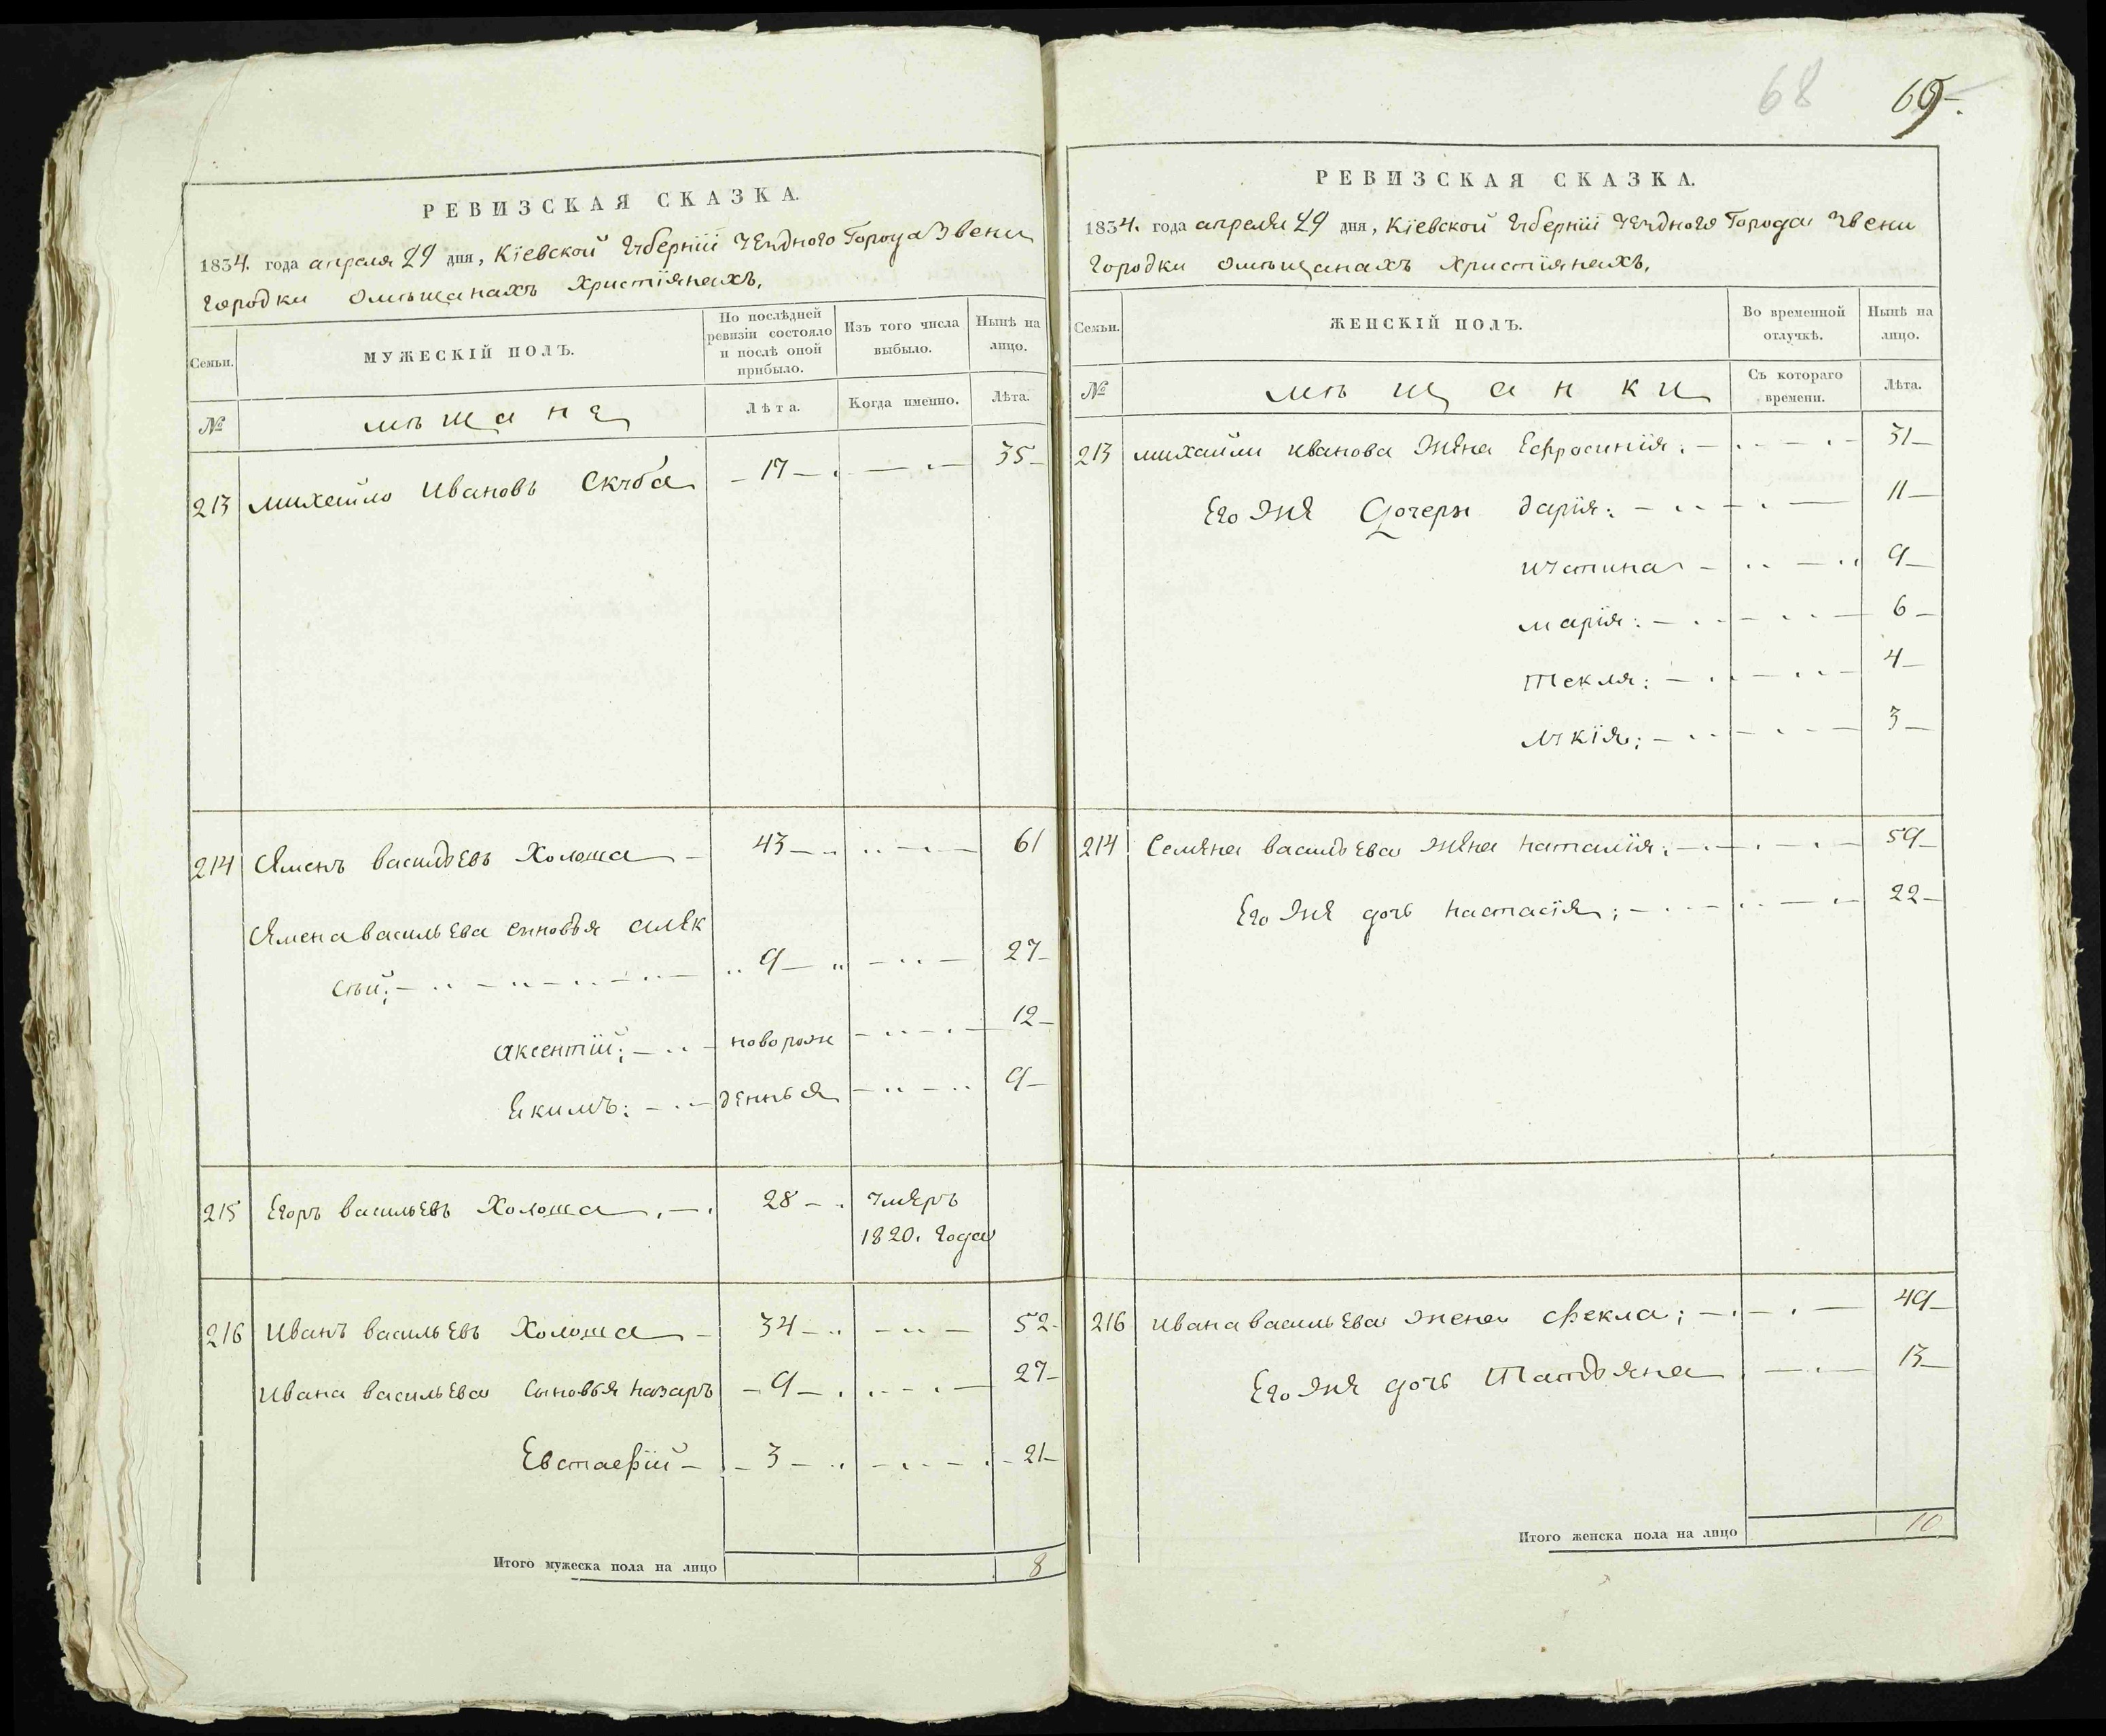 РЕВИЗСКАЯ СКАЗКА.
1834. года апреля 29 дня, Кіевской Губерніи Уезднаго Города Звени
городки омѣщанахъ христіянахъ.
Семьи.
МУЖЕСКІЙ ПОЛЪ.
По послѣдней ревизіи состояло и послѣ оной прибыло.
Изъ того числа выбыло.
Нынѣ на лицо.
№
мѣщане
Лѣта.
Когда именно.
Лѣта.
213 михайло Ивановъ Скуба 17 35
214 Семенъ васильевъ Холоша 43 61
Семена васильева синовья алек
сѣй; 9 27
аксентій; новорож 12
Екимъ: денныя 9
215 Егоръ васильевъ Холоша 28 умеръ
1820. года
216 Иванъ васильевъ Холоша 34 52
Ивана васильева сыновья назаръ 9 27
Евстафій 3 21
Итого мужеска пола на лицо 8
68 69
РЕВИЗСКАЯ СКАЗКА.
1834. года апреля 29 дня, Кіевской Губерніи Уезднаго Города Звени
городки омѣщанахъ христіянахъ.
Семьи.
ЖЕНСКІЙ ПОЛЪ.
Во временной отлучкѣ.
Нынѣ на лицо.
№
мѣщанки
Съ котораго времени.
Лѣта.
213 михайли иванова жена Ефросинія: 31
Его же Дочери дарія: 11
устина 9
марія: 6
текля: 4
лукія; 3
214 Семена васильева жена наталія: 59
Его же дочь настасія; 22
216 ивана васильева жена фекла; 49
Его же дочь татьяна 13
Итого женска пола на лицо 10